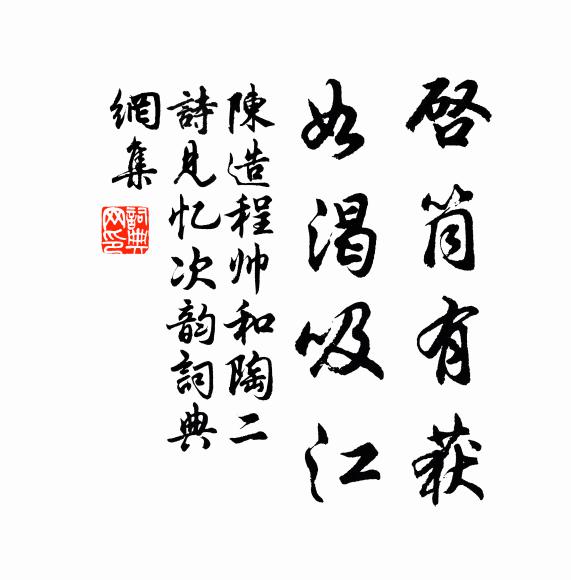 啓筒有获
如渴吸江
陳造程帅和陶二
詩見忆次韵詞典
網集
詞典
网印